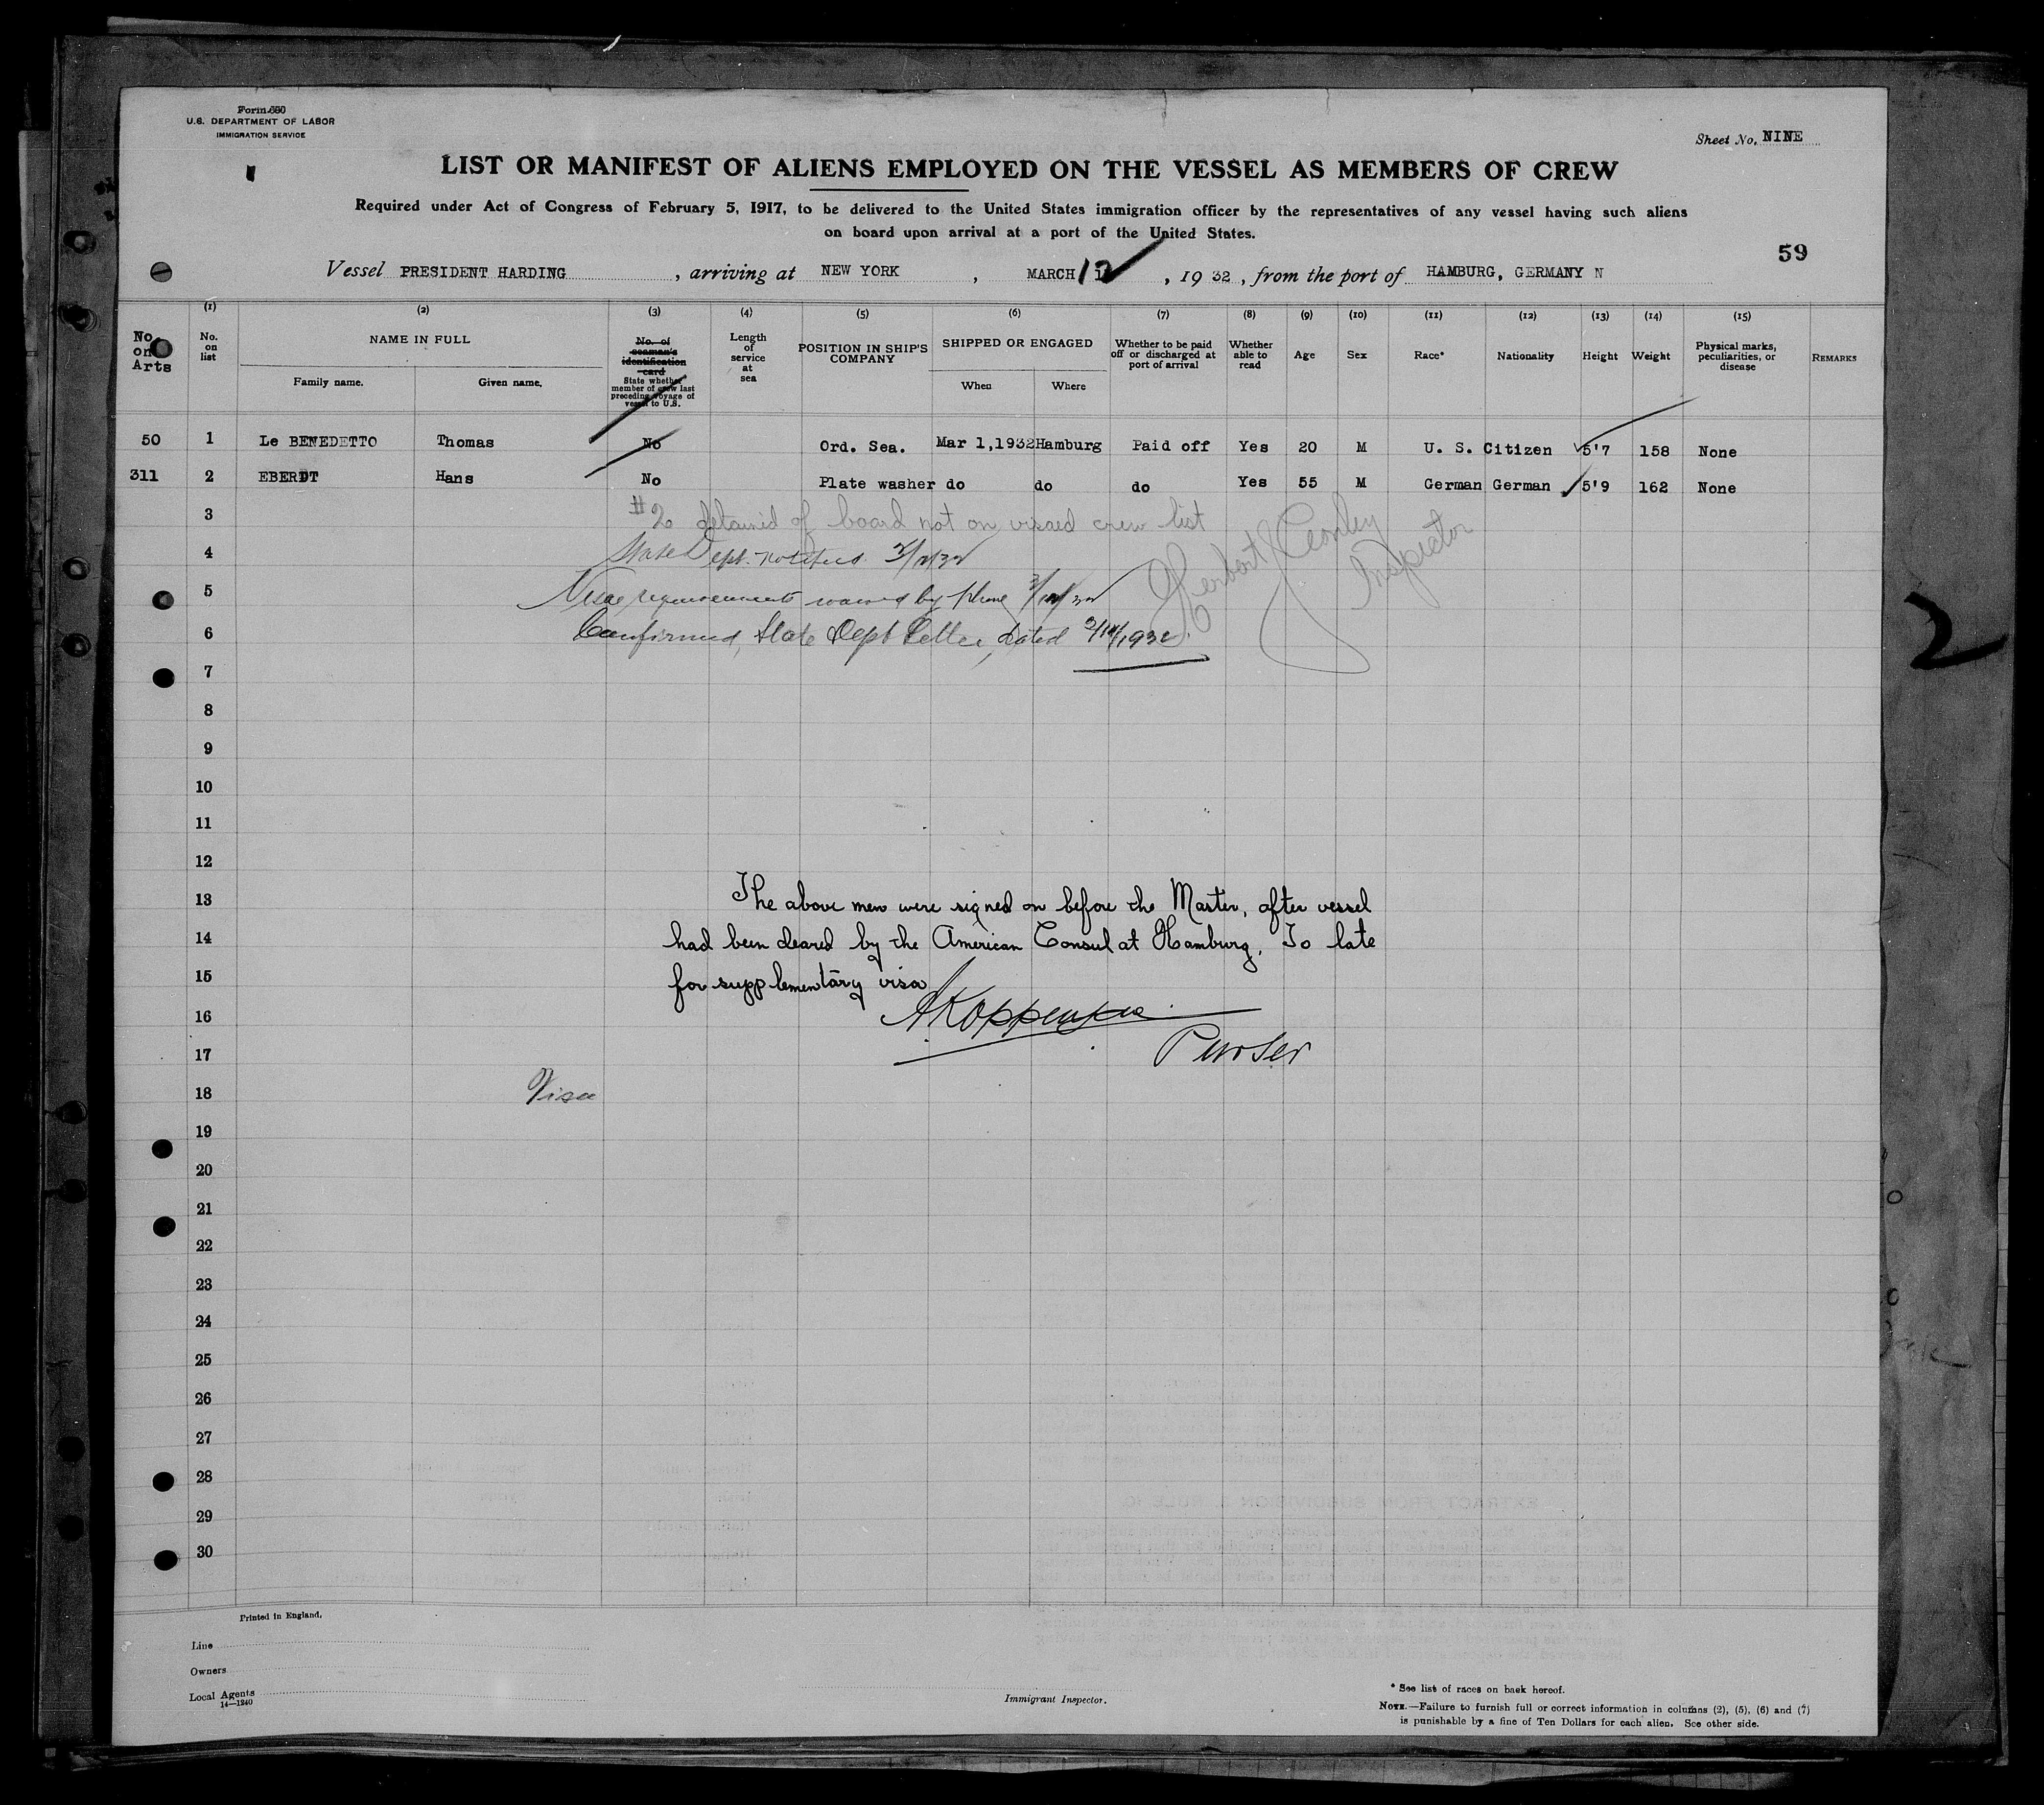 Form 680
U.S. DEPARTMENT OF LABOR
IMMIGRATION SERVICE
Sheet No. NINE
LIST OR MANIFEST OF ALIENS EMPLOYED ON THE VESSEL AS MEMBERS OF CREW
Required under Act of Congress of February 5, 1917, to be delivered to the United States immigration officer by the representatives of any vessel having such aliens
on board upon arrival at a port of the United States.
59
Vessel PRESIDENT HARDING, arriving at NEW YORK, MARCH 12, 1932, from the port of HAMBURG, GERMANY N
No. on Arts
(1) No. on list
(2) NAME IN FULL
Family name. Given name.
(3) No. of seaman's identification card State whether member of crew last preceding voyage of vessel to U.S.
(4) Length of service at sea
(5) POSITION IN SHIP'S COMPANY
(6) SHIPPED OR ENGAGED
When Where
(7) Whether to be paid off or discharged at port of arrival
(8) Whether able to read
(9) Age
(10) Sex
(11) Race*
(12) Nationality
(13) Height
(14) Weight
(15) Physical marks, peculiarities, or disease
REMARKS
50 1 Le BENEDETTO Thomas No Ord. Sea. Mar 1,1932 Hamburg Paid off Yes 20 M U. S. Citizen 5'7 158 None
311 2 EBERDT Hans No Plate washer do do do Yes 55 M German German 5'9 162 None
3 #2 detained of board not on visaed crew list
4 State Dept. notified
5 Visa requirements waived by phone
6 Confirmed, State Dept Letter, dated
Herbert Inspector
7
8
9
10
11
12
13 The above men were signed on before the Master, after vessel
14 had been cleared by the American Consul at Hamburg, To late
15 for supplementary visa
16
17 Purser
18 Visa
19
20
21
22
23
24
25
26
27
28
29
30
2
Printed in England.
Line
Owners
Local Agents
14—1240
Immigrant Inspector.
* See list of races on back hereof.
NOTE.—Failure to furnish full or correct information in columns (2), (5), (6) and (7)
is punishable by a fine of Ten Dollars for each alien. See other side.